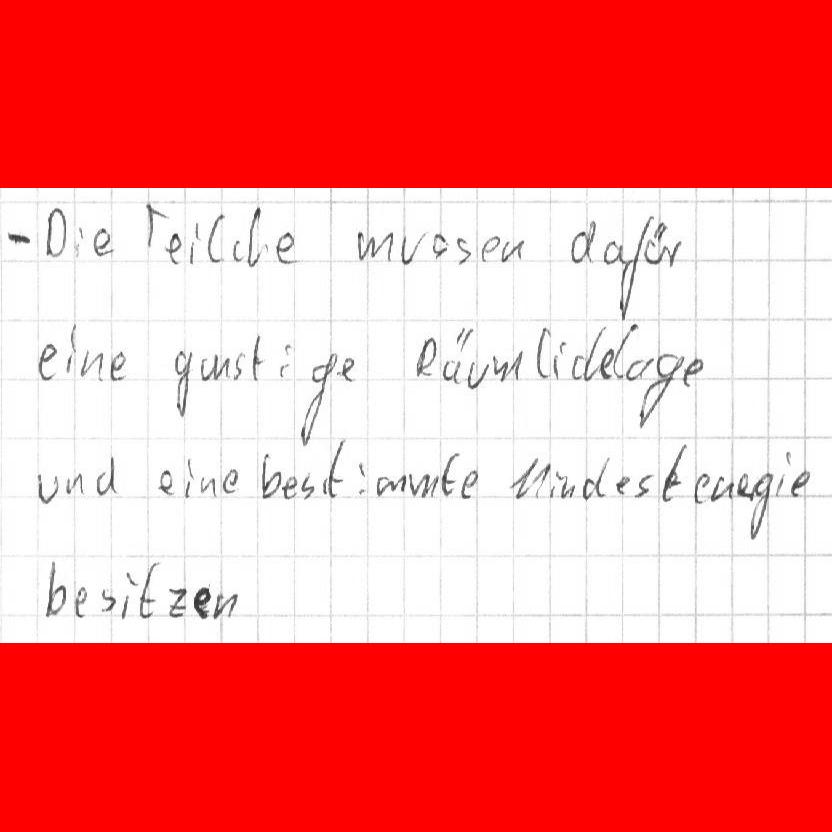 - Die Teilche mussen dafür
eine gunstige Räumlichelage
und eine bestimmte Mindestenegie
besitzen